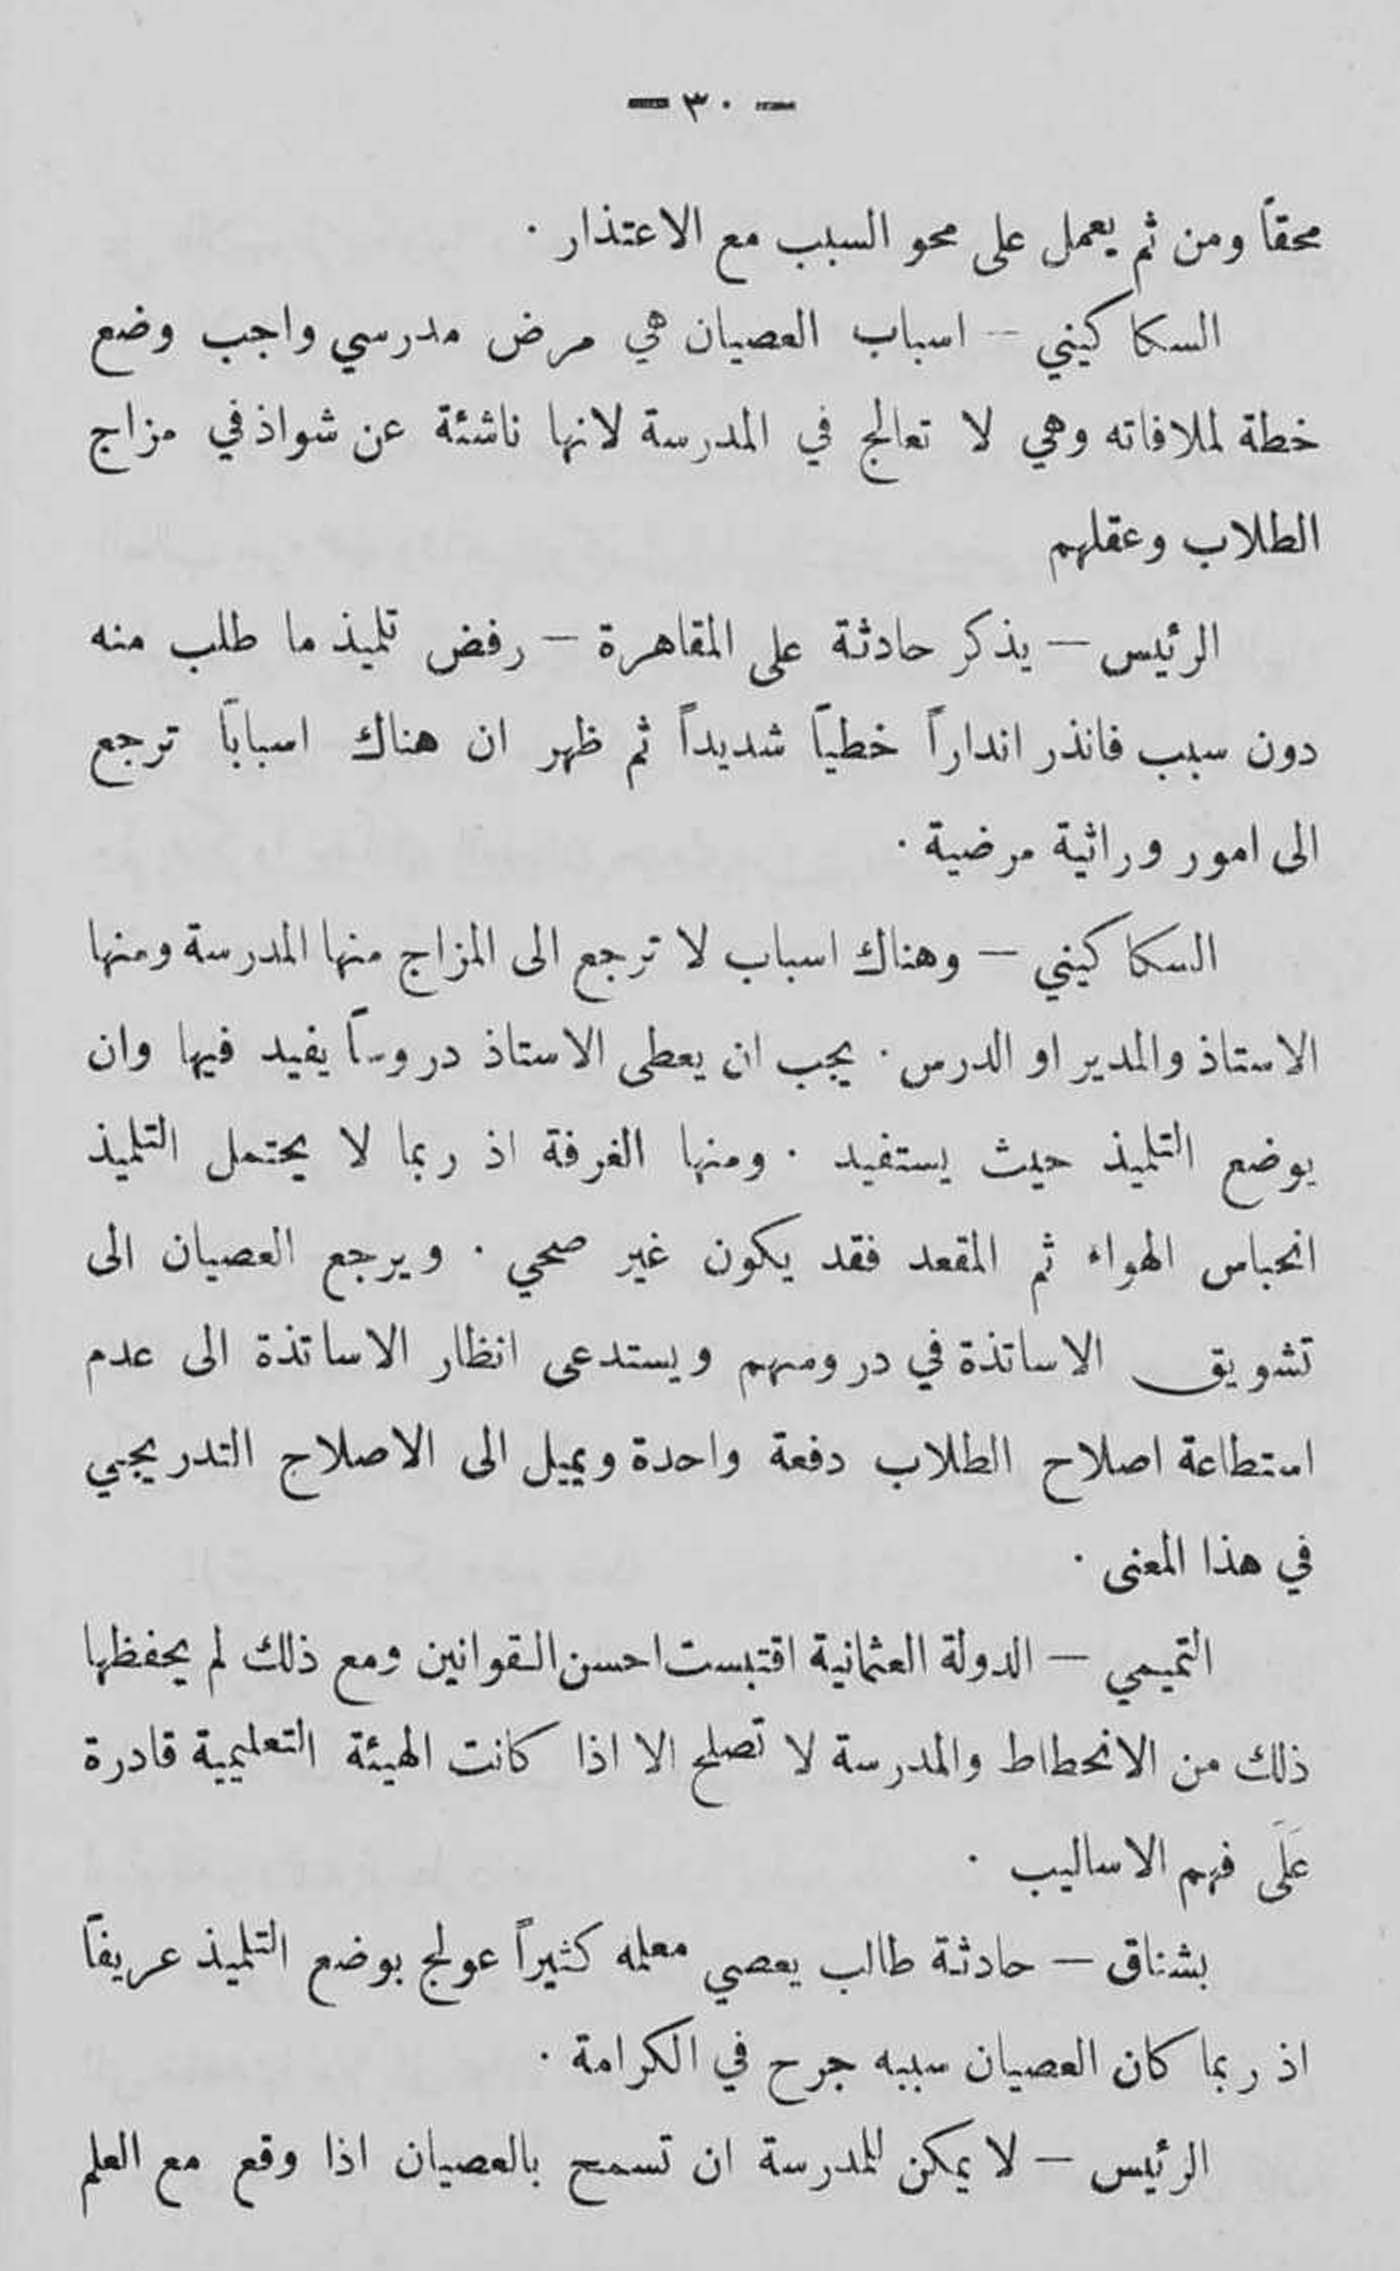 — ٣٠ —
محقاً ومن ثم يعمل على محو السبب مع الاعتذار ·
السكاكيني — اسباب العصيان هي مرض مدرسي واجب وضع
خطة لملافاته وهي لا تعالج في المدرسة لانها ناشئة عن شواذ في مزاج
الطلاب وعقلهم
الرئيس — يذكر حادثة على المقاهرة — رفض تلميذ ما طلب منه
دون سبب فانذر انداراً خطياً شديداً ثم ظهر ان هناك اسباباً ترجع
الى امور وراثية مرضية ·
السكاكيني — وهناك اسباب لا ترجع الى المزاج منها المدرسة ومنها
الاستاذ والمدير او الدرس · يجب ان يعطى الاستاذ دروساً يفيد فيها وان
يوضع التلميذ حيث يستفيد · ومنها الغرفة اذ ربما لا يحتمل التلميذ
انحباس الهواء ثم المقعد فقد يكون غير صحي · ويرجع العصيان الى
تشويق الاساتذة في دروسهم ويستدعى انظار الاساتذة الى عدم
استطاعة اصلاح الطلاب دفعة واحدة ويميل الى الاصلاح التدريجي
في هذا المعنى ·
التميمي — الدولة العثمانية اقتبست احسن القوانين ومع ذلك لم يحفظها
ذلك من الانحطاط والمدرسة لا تصلح الا اذا كانت الهيئة التعليمية قادرة
عَلَى فهم الاساليب ·
بشناق — حادثة طالب يعصي معلمه كثيراً عولج بوضع التلميذ عريفاً
اذ ربما كان العصيان سببه جرح في الكرامة ·
الرئيس — لا يمكن للمدرسة ان تسمح بالعصيان اذا وقع مع العلم